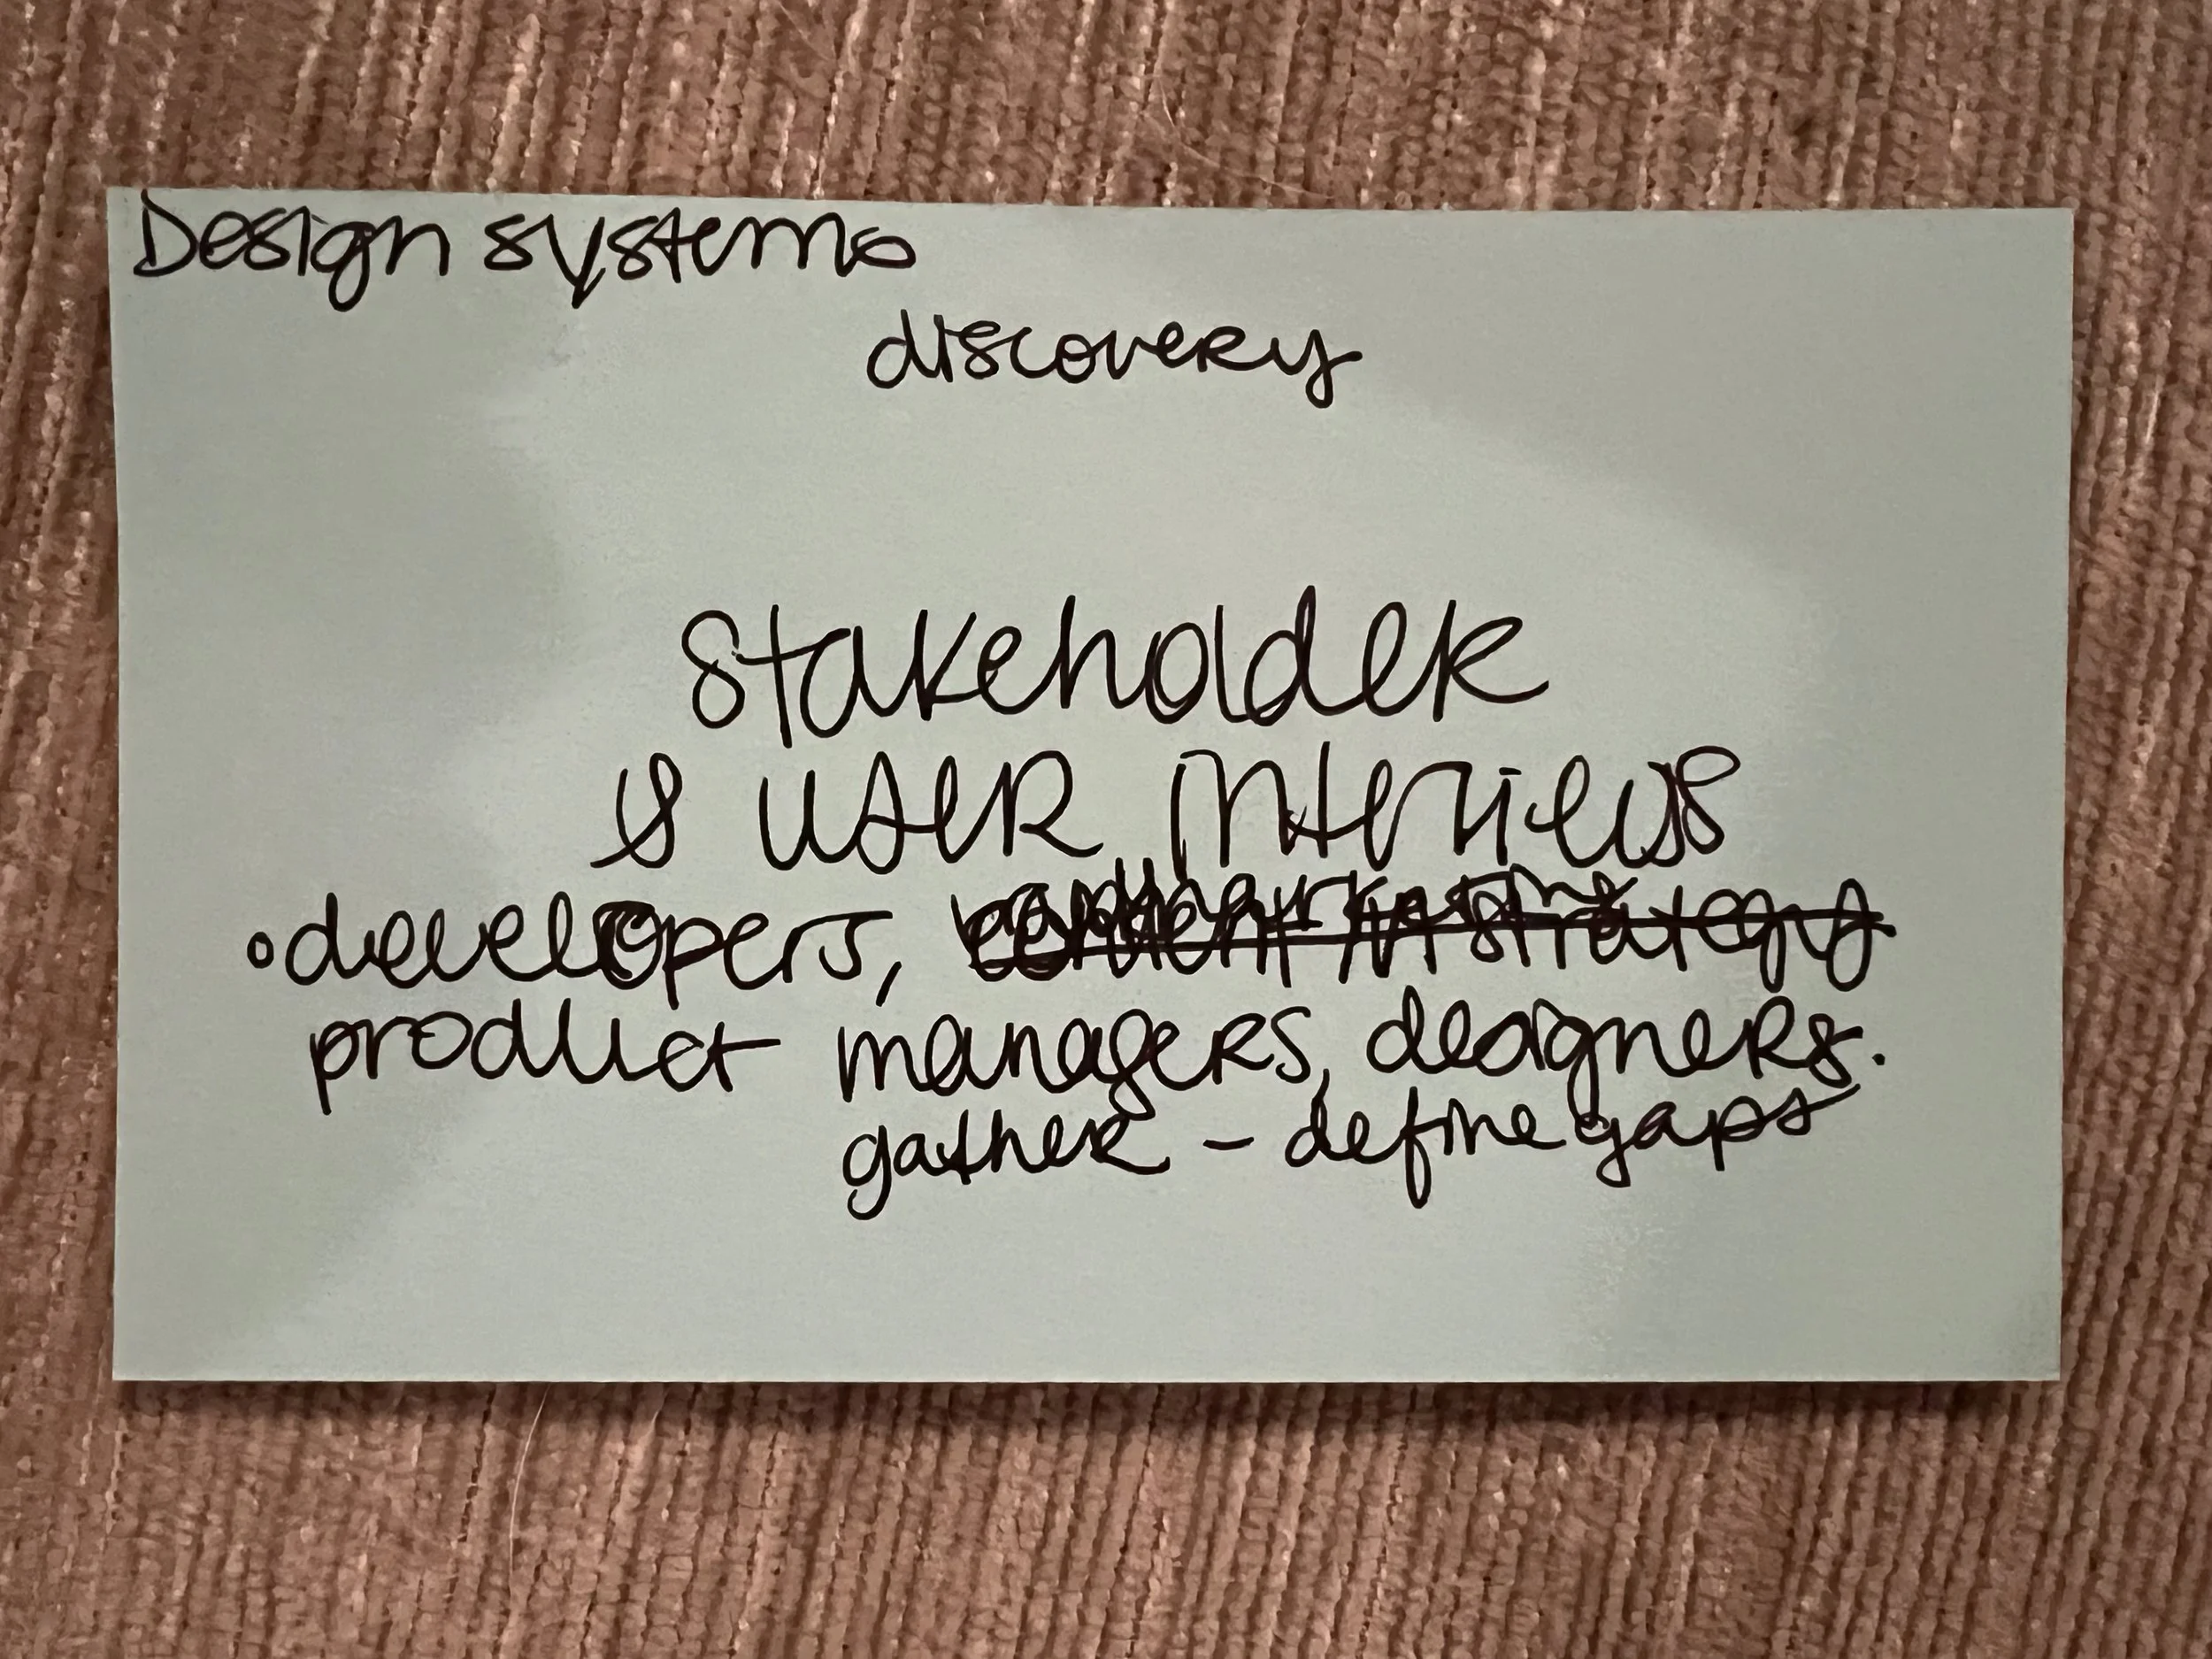 Design systems
discovery
stakeholder
& user interviews
• developers, content strategy
product managers, designers.
gather - define gaps